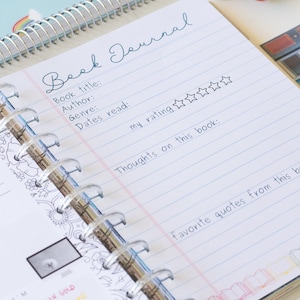 Book Journal
Book title:
Author:
Genre:
Dates read:
my rating
Thoughts on this book:
favorite quotes from this b
GOLD